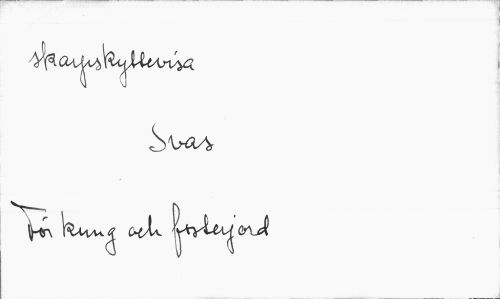 skarpskyttevisa
Svas
För kung och fosterjord